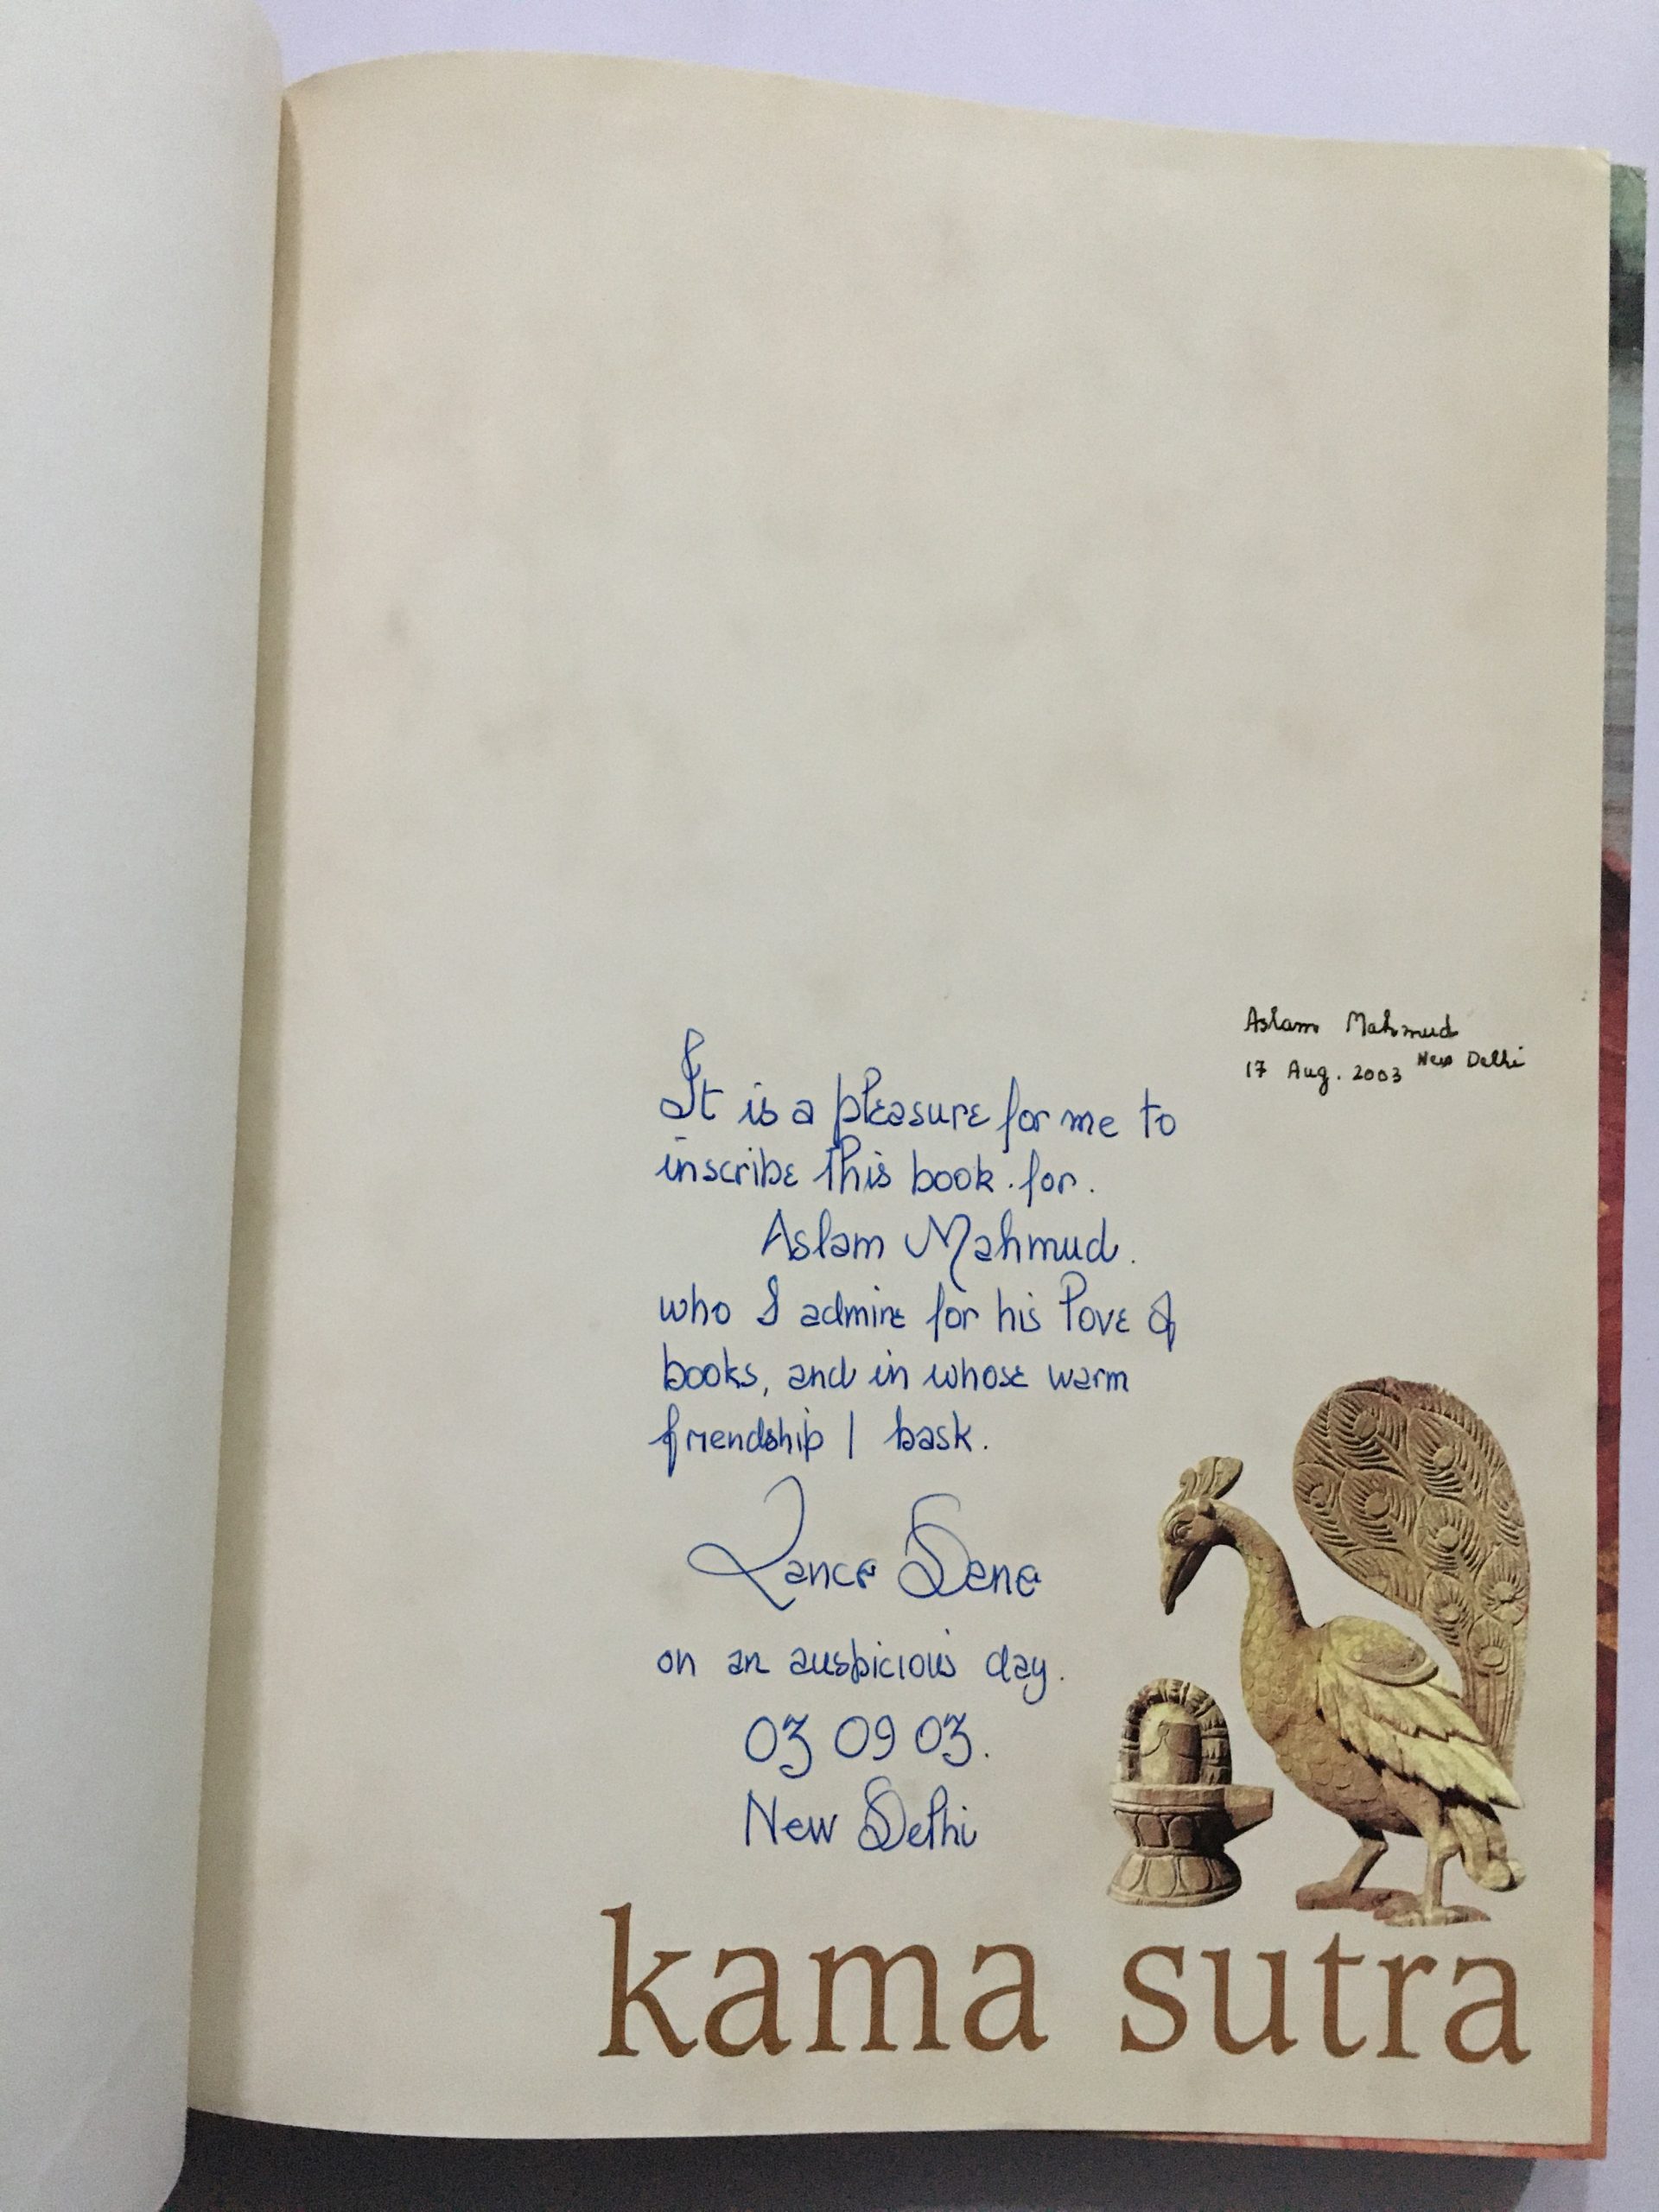 Aslam Mahmud
17 Aug. 2003 New Delhi
It is a pleasure for me to
inscribe this book for.
Aslam Mahmud.
who I admire for his love of
books, and in whose warm
friendship I bask.
Lance Dane
on an auspicious day.
03 09 03.
New Delhi
kama sutra